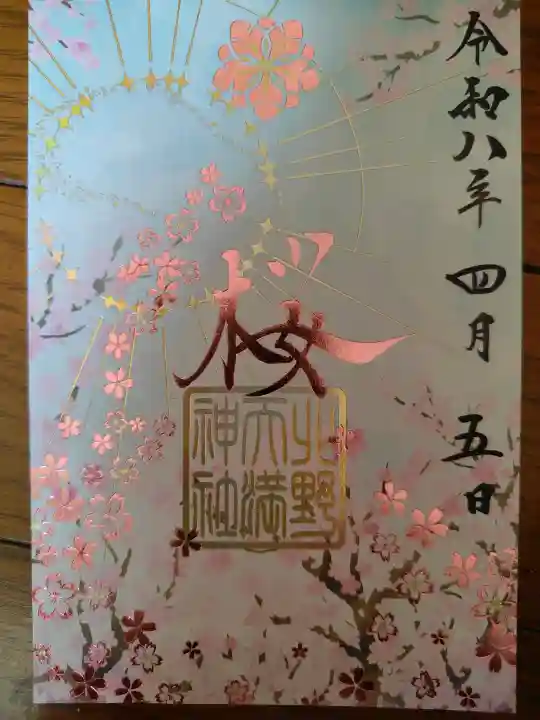 令和八年 四月 五日
桜
北野
天満
神社